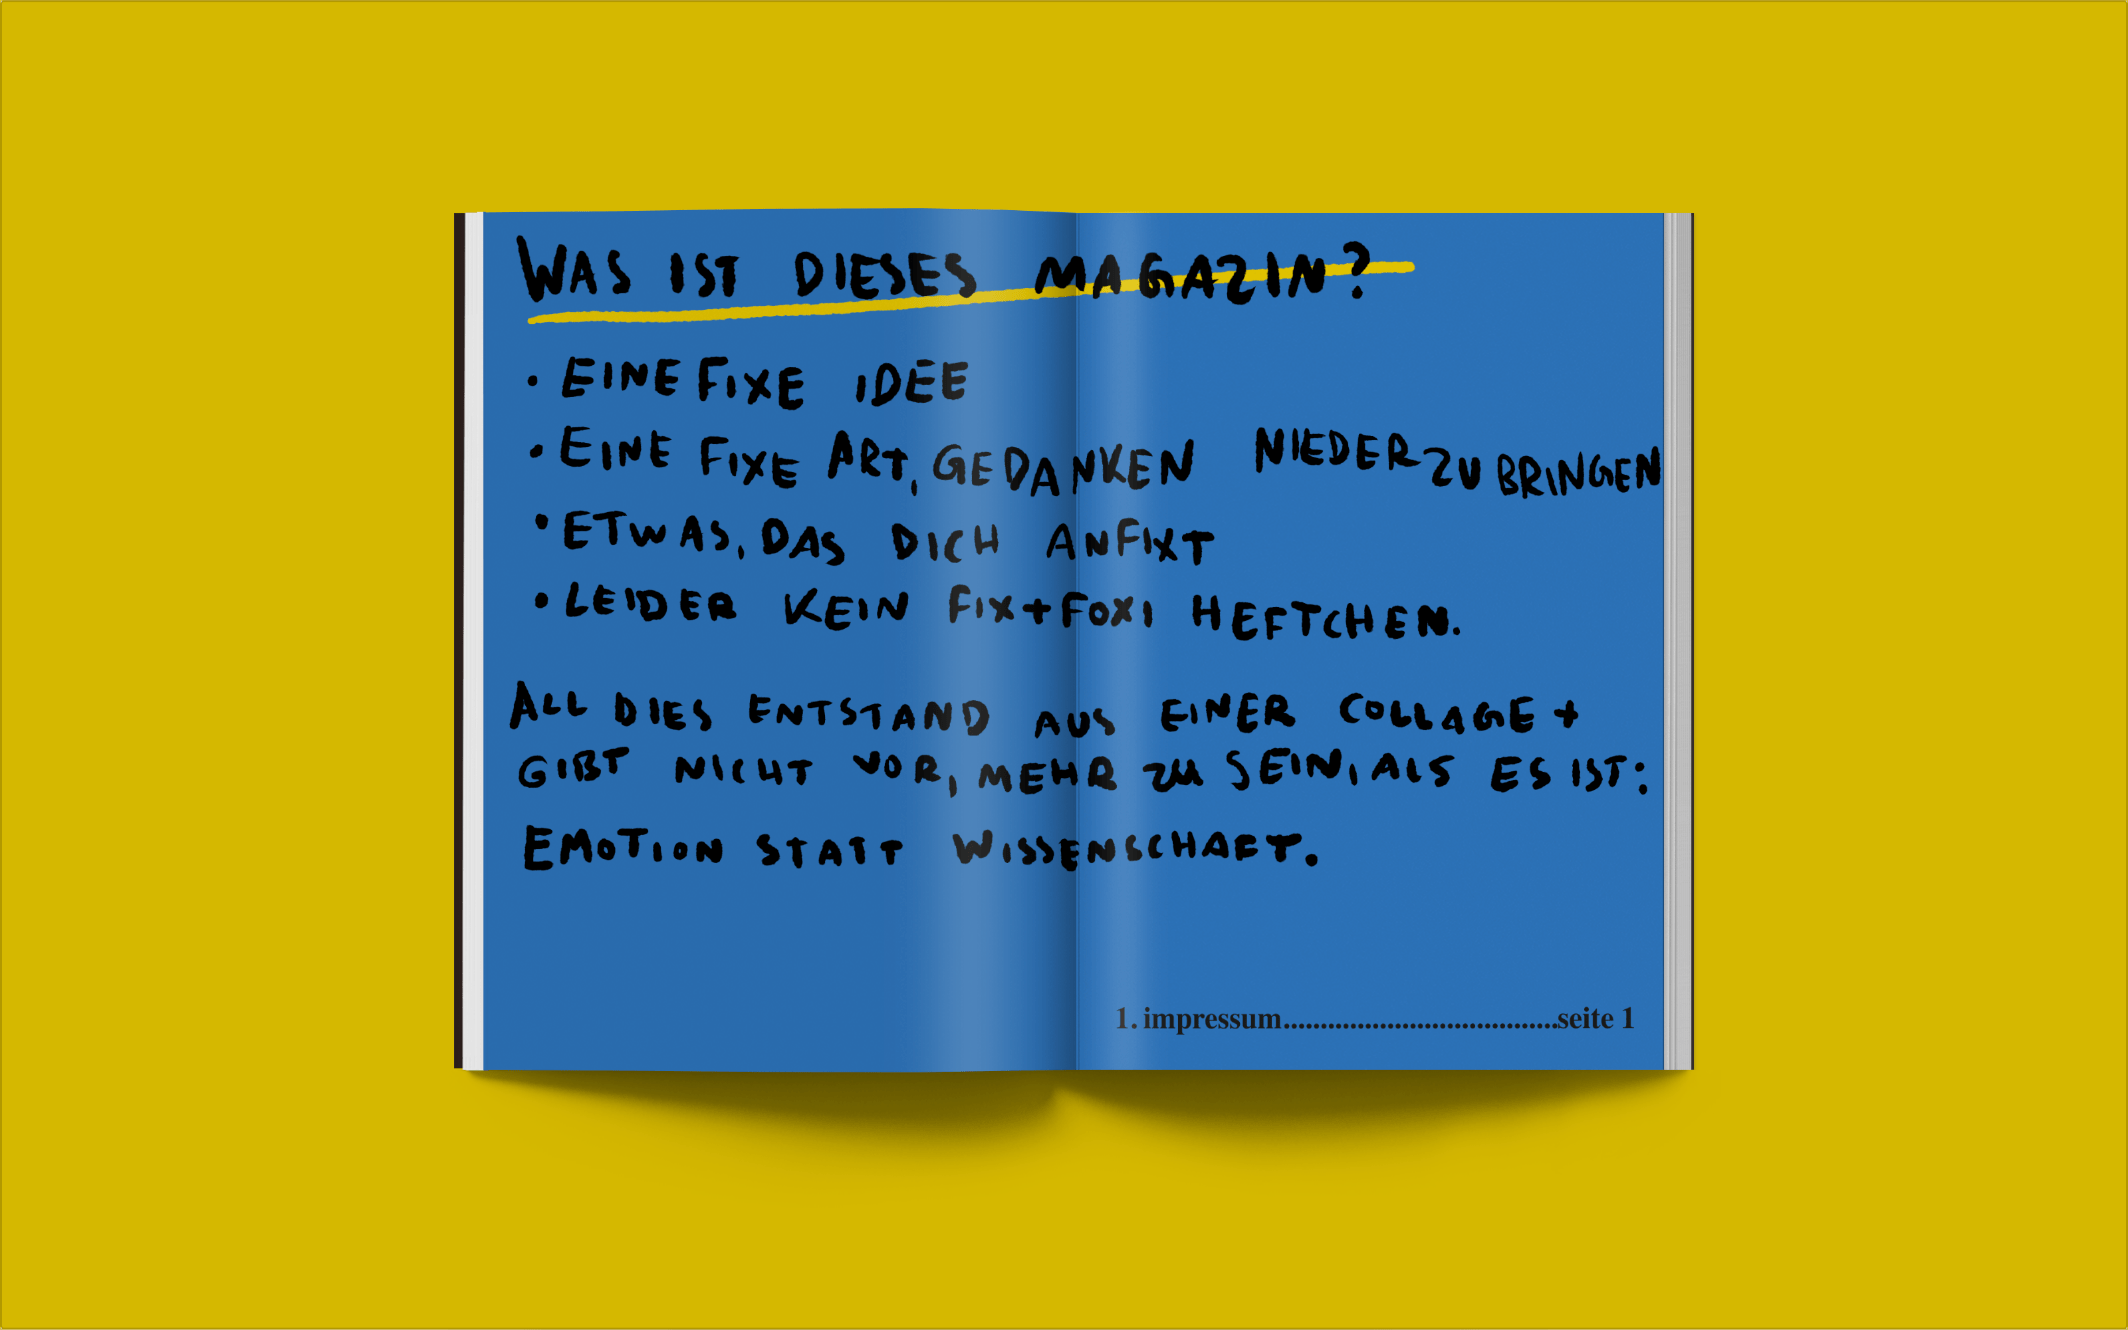 WAS IST DIESES MAGAZIN?
• EINE FIXE IDEE
• EINE FIXE ART, GEDANKEN NIEDERZUBRINGEN
• ETWAS, DAS DICH ANFIXT
• LEIDER KEIN FIX+FOXI HEFTCHEN.
ALL DIES ENTSTAND AUS EINER COLLAGE +
GIBT NICHT VOR, MEHR ZU SEIN, ALS ES IST:
EMOTION STATT WISSENSCHAFT.
1. impressum.....................................seite 1